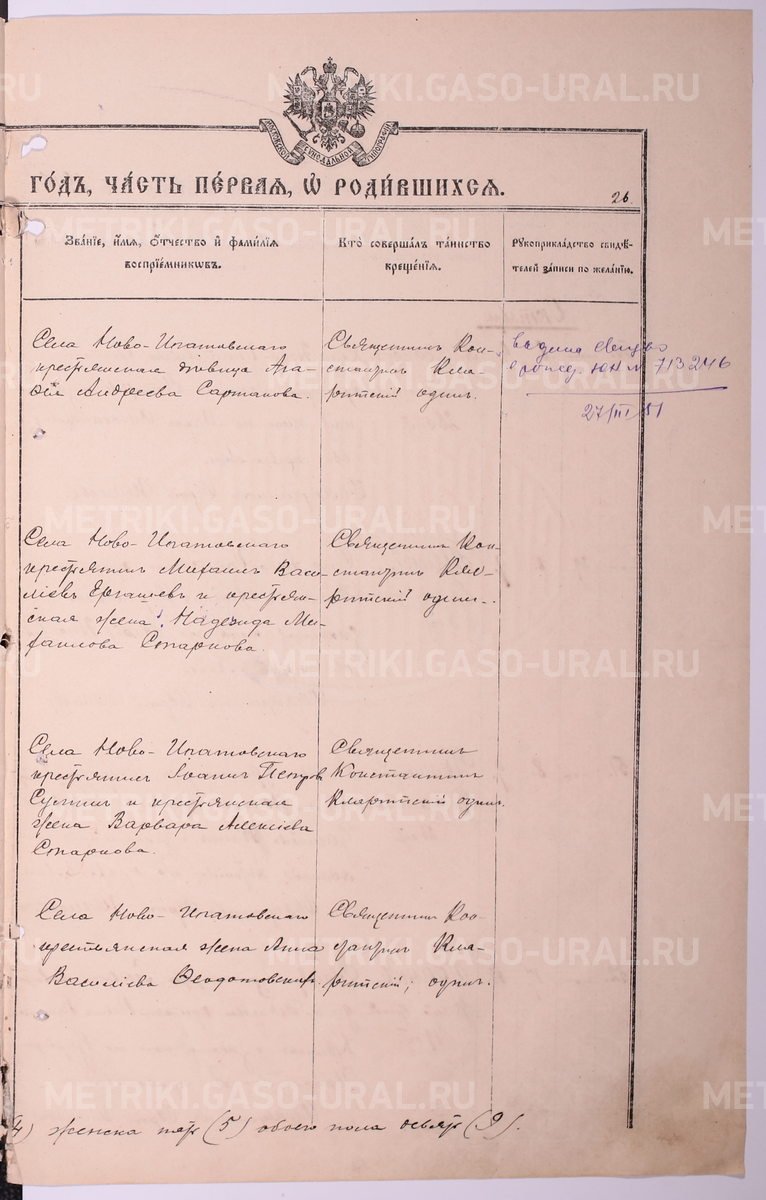 МОСКОВСКОЙ СѴНОДАЛЬНОЙ ТИПОГРАФІИ
ГО́ДЪ, ЧА́СТЬ ПЕ́РВАЯ, Ѡ҆ РОДИ́ВШИХСЯ.
26.
Зва́нїе, и҆́мя, ѻ҆́тчество и҆ фами́лїя
воспрїе́мникѡвъ.
Кто̀ соверша́лъ та́инство
креще́нїя.
Рꙋкоприкла́дство свидѣ́-
телей за́писи по жела́нїю.
Села Ново-Ипатовскаго
крестьянская дѣвица Ага-
Андреева Сартакова.
Священникъ Кон-
стантинъ Кля-
ритскій одинъ.
выдана
713246
27/III 51
Села Ново-Ипатовскаго
крестьянинъ Михаилъ Васи-
ліевъ и крестьян-
ская жена Надежда Ми-
хаилова Старкова.
Священникъ Кон-
стантинъ Кля-
ритскій одинъ.
Села Ново-Ипатовскаго
крестьянинъ Іоаннъ Петровъ
и крестьянская
жена Варвара Алексіева
Старкова.
Священникъ
Константинъ
Кляритскій одинъ.
Села Ново-Ипатовскаго
крестьянская жена Анна
Василіева
Священникъ Кон-
стантинъ Кля-
ритскій, одинъ.
4) женска пять (5) обоего пола девять (9).
METRIKI.GASO-URAL.RU